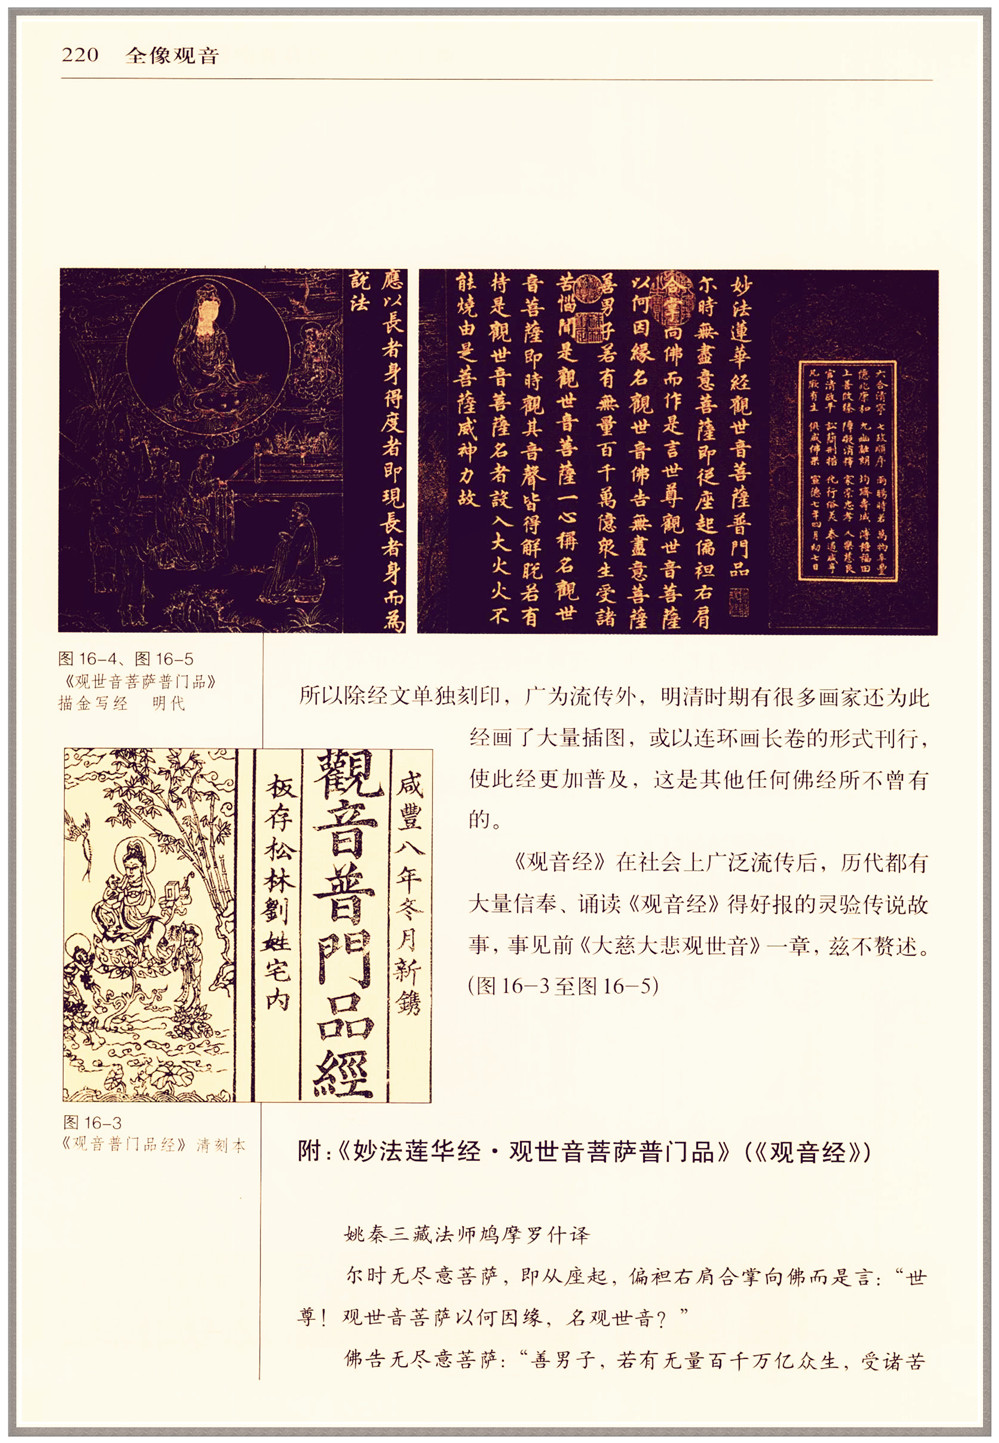 220 全像观音
應以長者身得度者即現長者身而為
説法
妙法蓮華經觀世音菩薩普門品
尔時無盡意菩薩即從座起偏袒右肩
合掌向佛而作是言世尊觀世音菩薩
以何因緣名觀世音佛告無盡意菩薩
善男子若有無量百千萬億衆生受諸
苦惱聞是觀世音菩薩一心稱名觀世
音菩薩即時觀其音聲皆得解脱若有
持是觀世音菩薩名者設入大火火不
能燒由是菩薩威神力故
图 16-4、图 16-5
《观世音菩萨普门品》
描金写经 明代
所以除经文单独刻印，广为流传外，明清时期有很多画家还为此
经画了大量插图，或以连环画长卷的形式刊行，
使此经更加普及，这是其他任何佛经所不曾有
的。
《观音经》在社会上广泛流传后，历代都有
大量信奉、诵读《观音经》得好报的灵验传说故
事，事见前《大慈大悲观世音》一章，兹不赘述。
（图 16-3 至图 16-5）
咸豐八年冬月新鐫
觀音普門品經
板存松林劉姓宅内
图 16-3
《观音普门品经》 清刻本
附：《妙法莲华经·观世音菩萨普门品》（《观音经》）
姚秦三藏法师鸠摩罗什译
尔时无尽意菩萨，即从座起，偏袒右肩合掌向佛而是言：“世
尊！观世音菩萨以何因缘，名观世音？”
佛告无尽意菩萨：“善男子，若有无量百千万亿众生，受诸苦